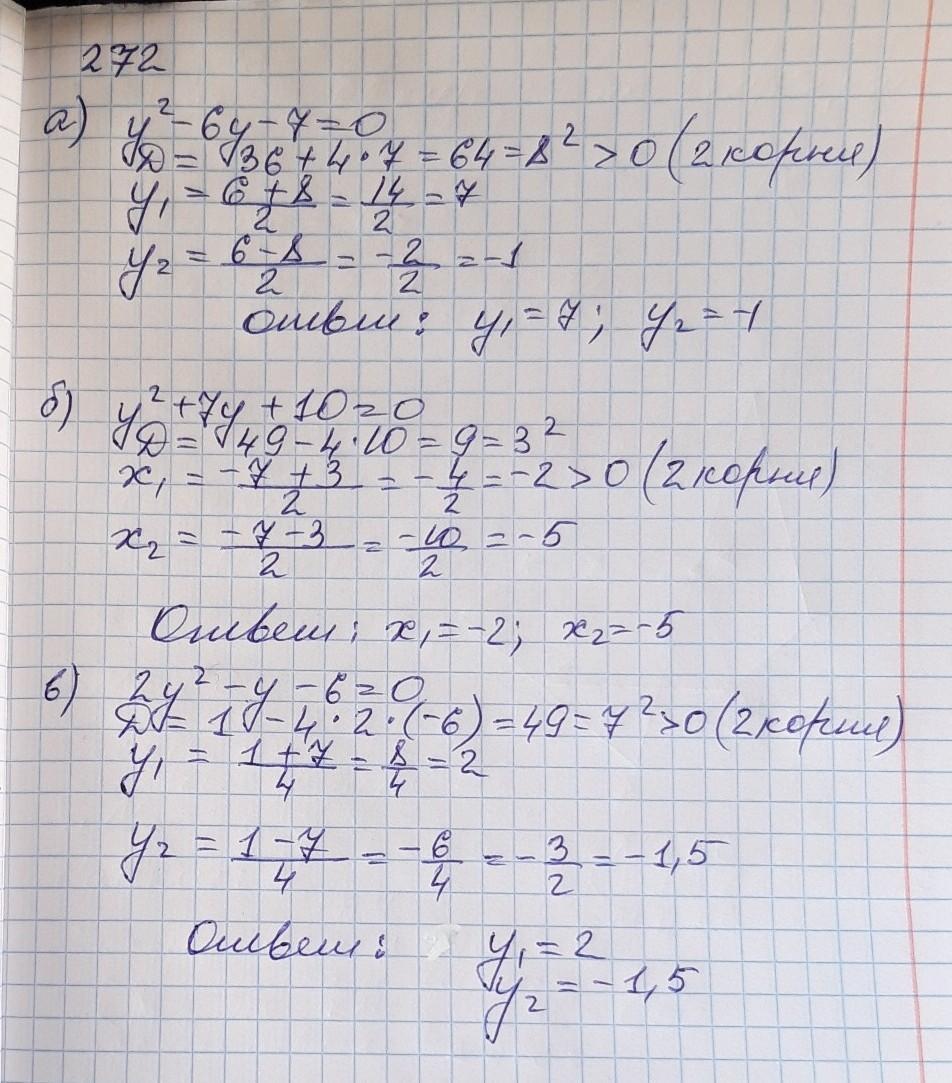 272
а) y² - 6y - 7 = 0
D = 36 + 4·7 = 64 = 8² > 0 (2 корня)
y₁ = (6 + 8)/2 = 14/2 = 7
y₂ = (6 - 8)/2 = -2/2 = -1
Ответ: y₁ = 7; y₂ = -1
б) y² + 7y + 10 = 0
D = 49 - 4·10 = 9 = 3²
x₁ = (-7 + 3)/2 = -4/2 = -2 > 0 (2 корня)
x₂ = (-7 - 3)/2 = -10/2 = -5
Ответ: x₁ = -2; x₂ = -5
в) 2y² - y - 6 = 0
D = 1 - 4·2·(-6) = 49 = 7² > 0 (2 корня)
y₁ = (1 + 7)/4 = 8/4 = 2
y₂ = (1 - 7)/4 = -6/4 = -3/2 = -1,5
Ответ: y₁ = 2
y₂ = -1,5